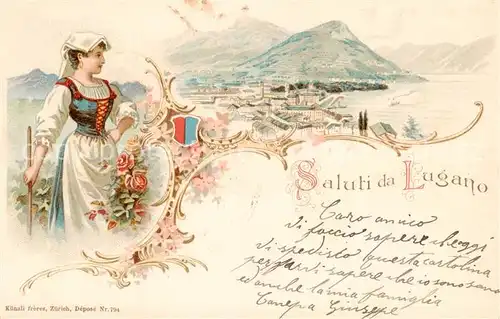 Saluti da Lugano
Caro amico
di faccio sapere che oggi
di spedisto questa cartolina
per farti sapere che io sono sano
ed anche la mia famiglia
Canepa Giuseppe
Künzli frères, Zürich, Déposé Nr. 794